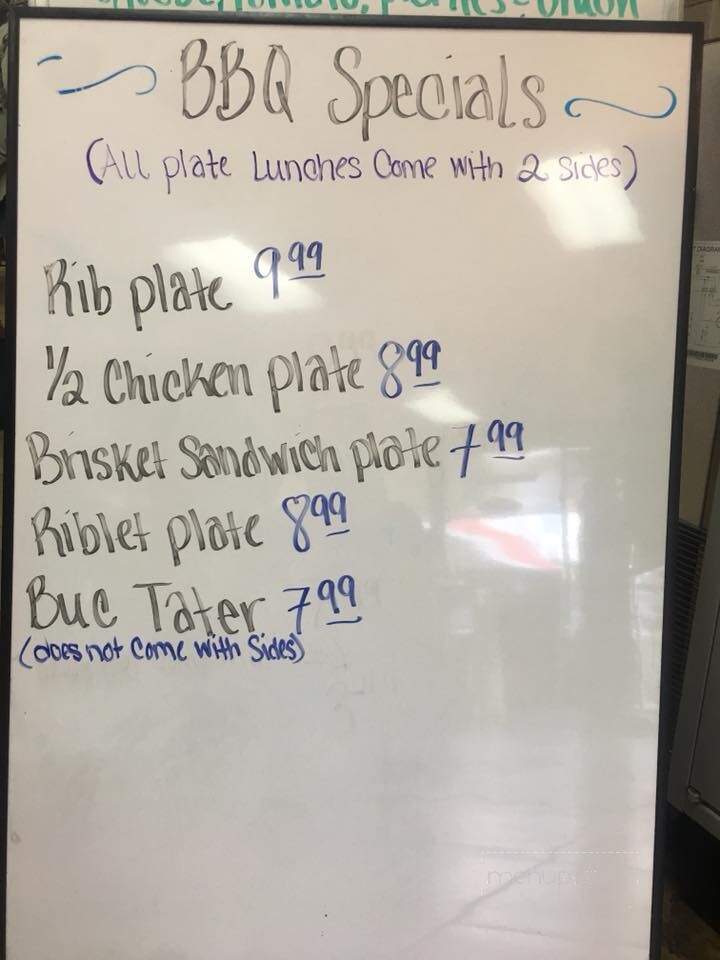 BBQ Specials
(All plate Lunches Come with 2 sides)
Rib plate 9.99
1/2 Chicken plate 8.99
Brisket Sandwich plate 7.99
Riblet plate 8.99
Buc Tater 7.99
(does not Come with Sides)